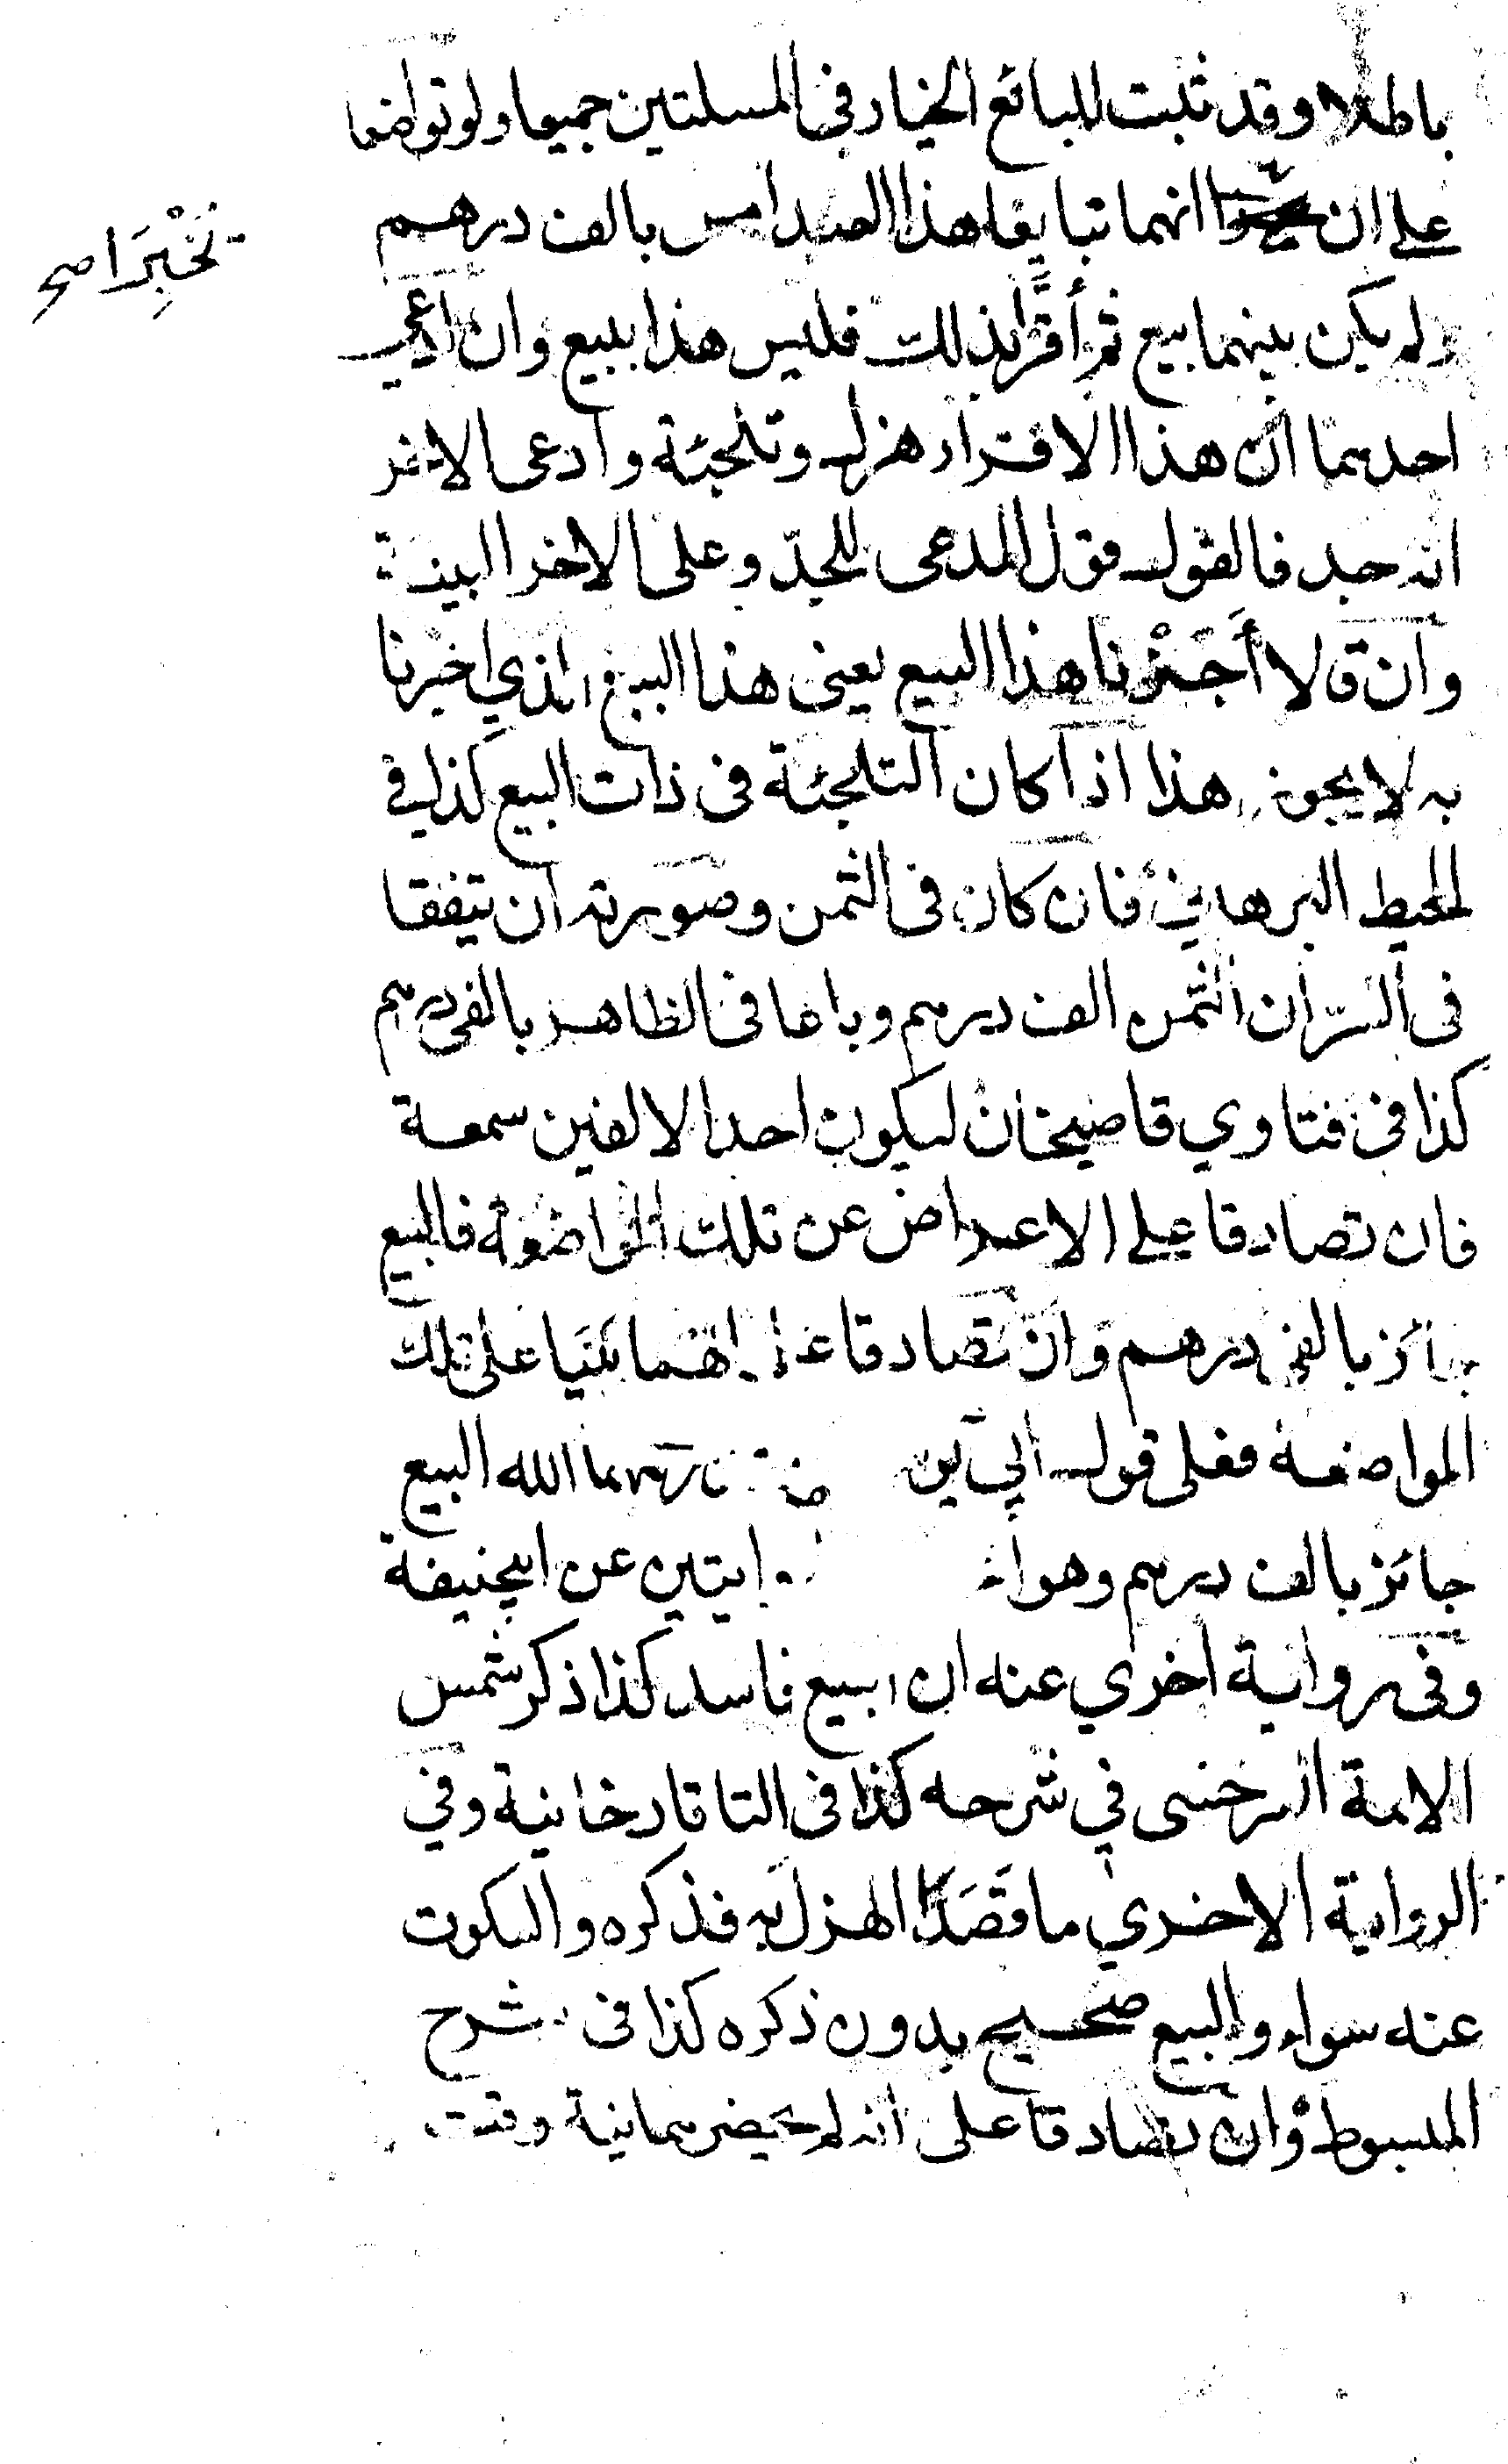 باطلا وقد ثبت للبائع الخيار فى المسلتين جميعا ولو تواضعا
على ان انهما تبايعا هذا العبد امس بالف درهم
تخْبِرَا صح
ولم يكن بينهما بيع ثم أقرَّا بذلك فليس هذا ببيع وان ادعى
احدهما ان هذا الاقرار هزل وتلجئة وادعى الاخر
انه جد فالقول قول المدعى للجدّ وعلى الاخر البينة
وان قالا أَجَزْنا هذا البيع يعنى هذا البيع الذي اخبرنا
به لا يجوز هذا اذا كان التلجئة فى ذات البيع كذا في
المحيط البرهاني فان كان فى الثمن وصورته ان يتفقا
فى السرّ ان الثمن الف درهم وباعا فى الظاهر بالفى درهم
كذا فى فتاوي قاضيخان ليكون احد الالفين سمعة
فان تصادقا على الاعراض عن تلك المواضعة فالبيع
جائز بالفى درهم وان تصادقا انهما بَنَيا على تلك
المواضعة فعلى قول ابي رحمهما الله البيع
جائز بالف درهم وهو ايتين عن ابيحنيفة
وفى رواية اخري عنه ان البيع فاسد كذا ذكر شمس
الائمة السرخسى في شرحه كذا فى التاتارخانية وفي
الرواية الاخري ما قَصَدَا الهزل به فذكره والسكوت
عنه سواء والبيع صحيح بدون ذكره كذا فى شرح
المبسوط وان تصادقا على انه لم يحضرهما نية وقت